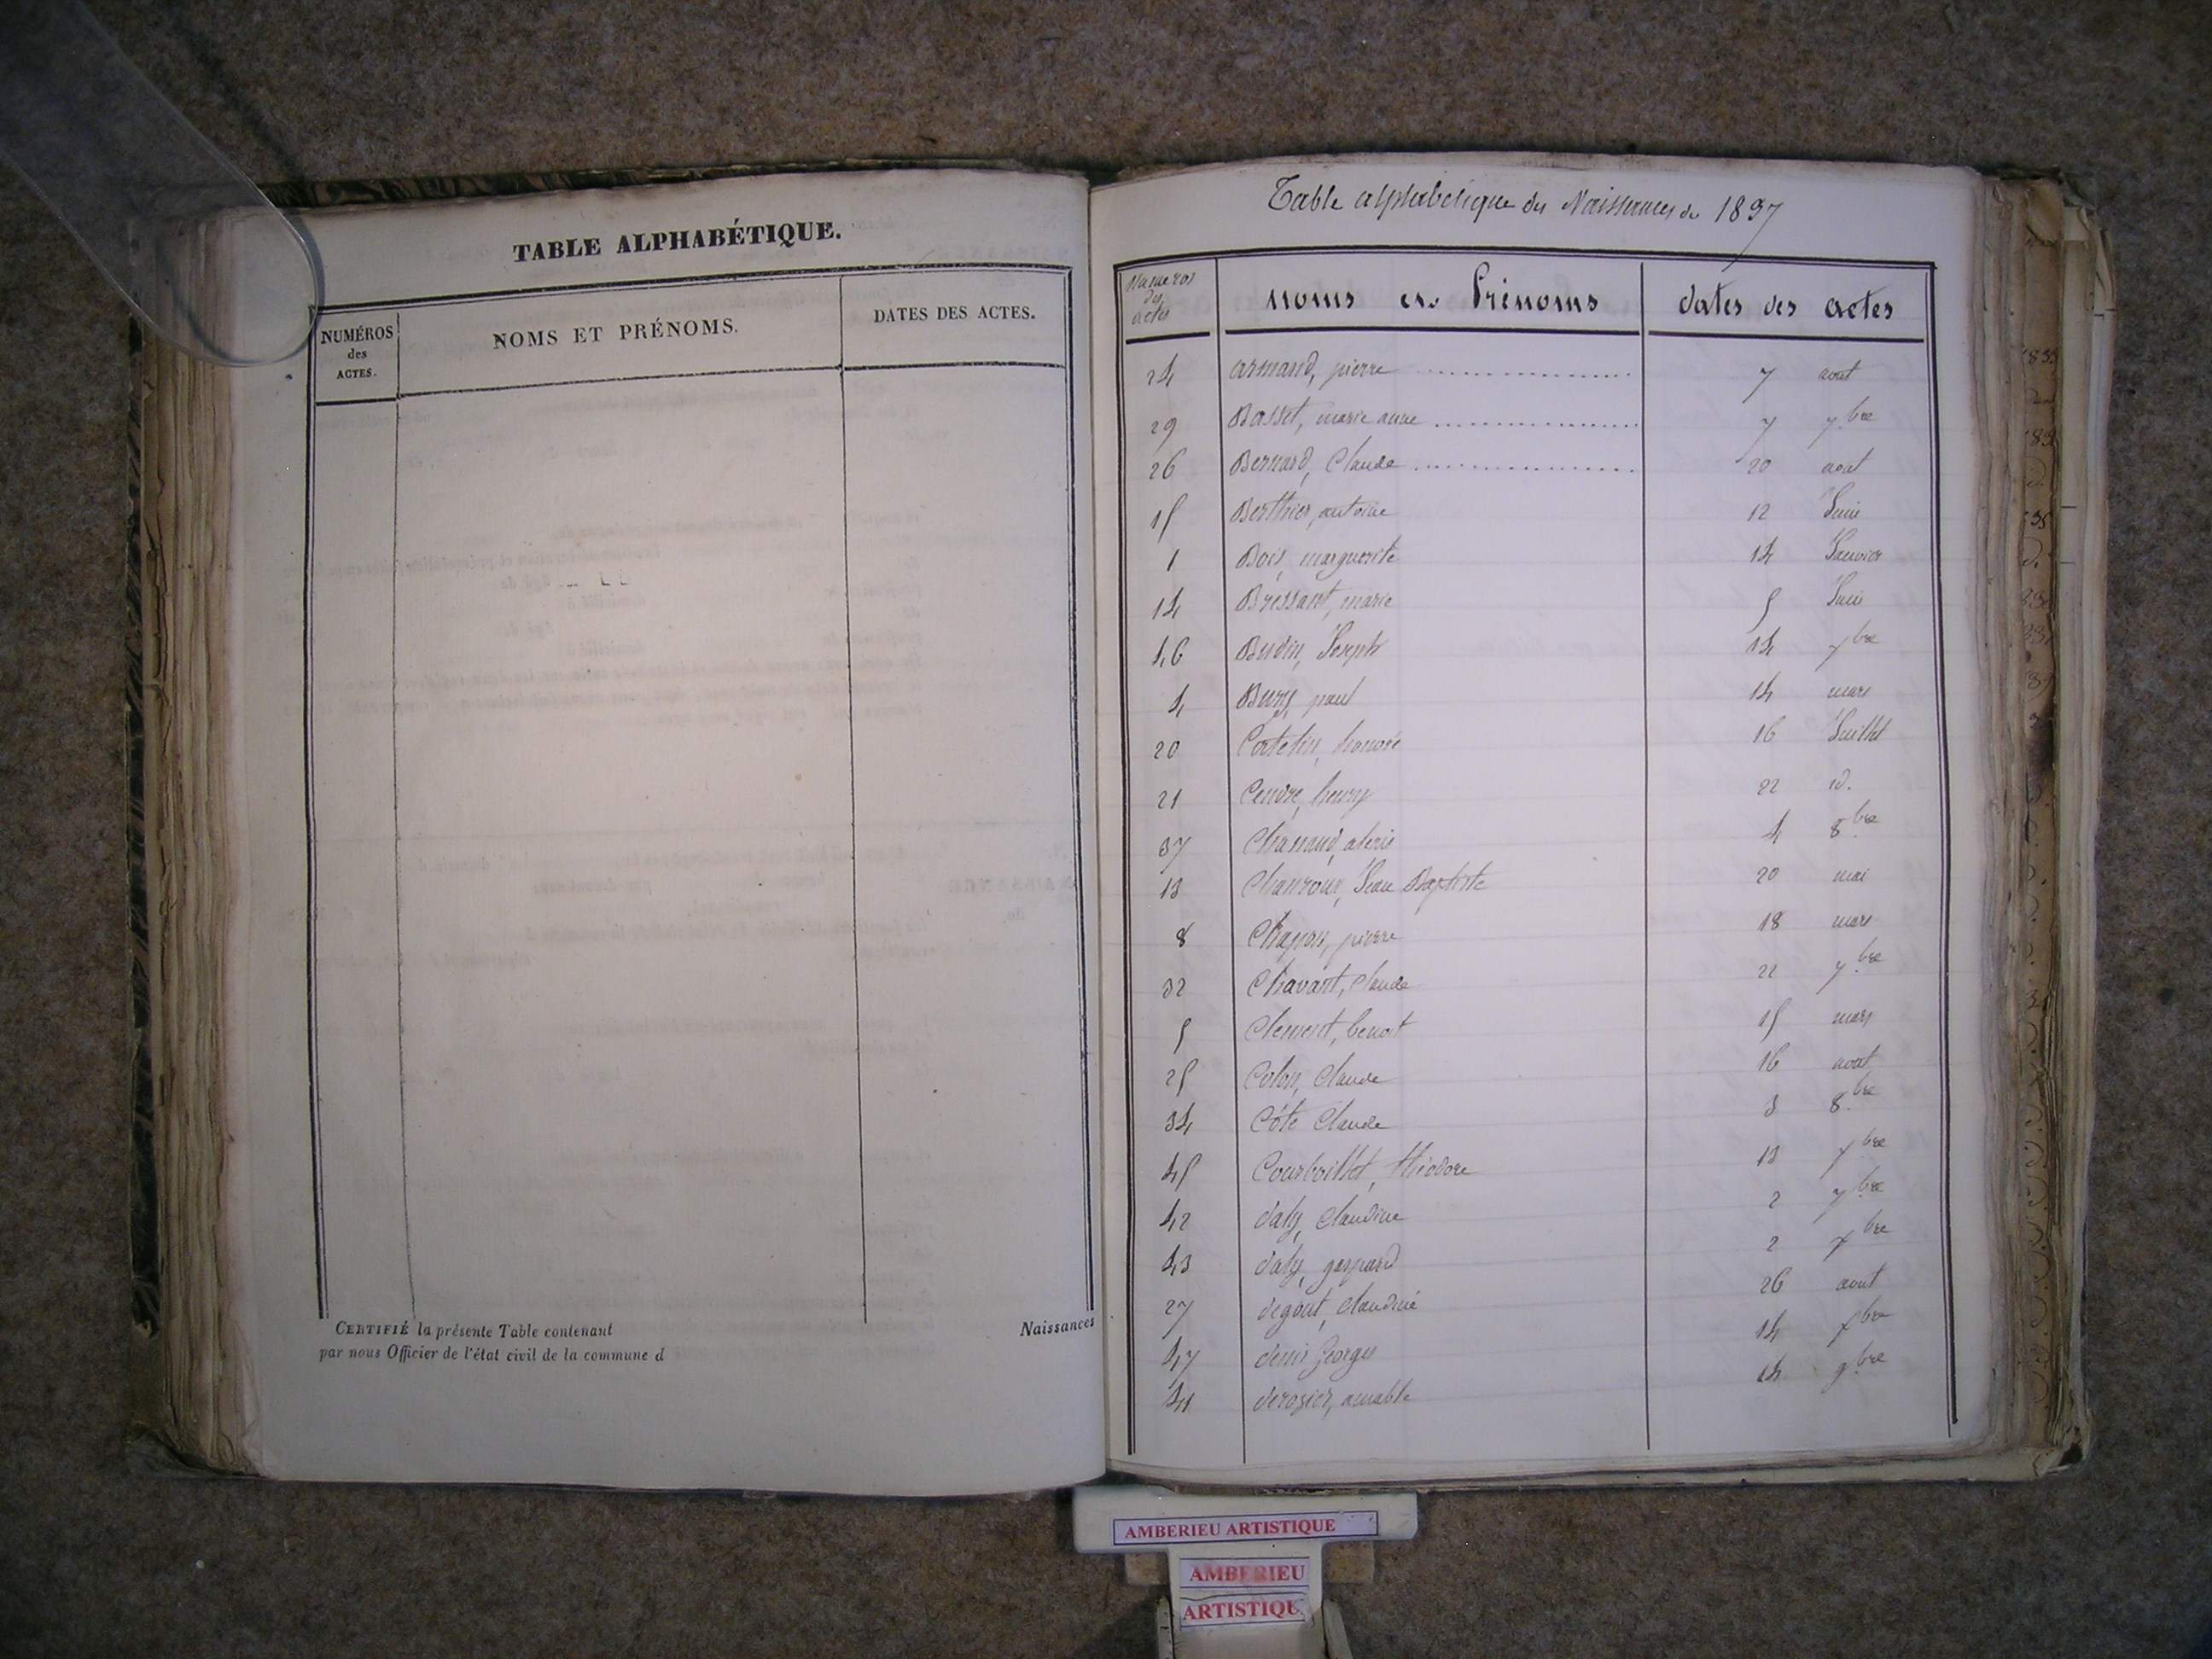 TABLE ALPHABÉTIQUE.
NUMÉROS
des
ACTES.
NOMS ET PRÉNOMS.
DATES DES ACTES.
CERTIFIÉ la présente Table contenant Naissances
par nous Officier de l'état civil de la commune d
Table alphabétique des Naissances de 1837
Numeros
des
actes
noms et Prénoms
dates des actes
24 armand, pierre 7 aout
29 Basset, marie anne 7 7bre
26 Bernard, Claude 20 aout
15 Berthier, antoine 12 Juin
1 Bois, marguerite 14 Janvier
14 Bressant, marie 5 Juin
46 Budin, Joseph 14 xbre
4 Bury, paul 14 mars
20 Catelin, honoré 16 Juillet
21 Cendre, henry 22 id.
37 4 8bre
13 Chanroux, Jean Baptiste 20 mai
8 Chapon, pierre 18 mars
32 Chavant, Claude 22 7bre
5 Clement, benoit 15 mars
25 Colon, Claude 16 aout
34 Côte Claude 3 8bre
45 Courboillet, théodore 13 xbre
42 daly, Claudine 2 xbre
43 daly, gaspard 2 xbre
27 degout, Claudine 26 aout
47 denis Georges 14 xbre
41 derozier, amable 14 9bre
AMBERIEU ARTISTIQUE
AMBERIEU
ARTISTIQU